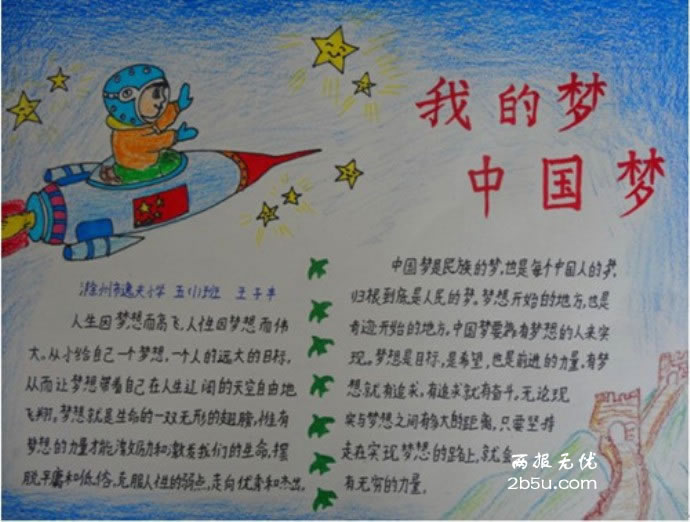 我的梦
中国梦
滁州市逸夫小学 五(1)班
人生因梦想而高飞,人性因梦想而伟
大。从小给自己一个梦想,一个人的远大的目标,
从而让梦想带着自己在人生辽阔的天空自由地
飞翔。梦想就是生命的一双无形的翅膀,惟有
梦想的力量才能激励和激发我们的生命,摆
脱平庸和低俗,克服人性的弱点,走向优秀和杰出。
中国梦是民族的梦,也是每个中国人的梦,
归根到底是人民的梦。梦想开始的地方,也是
奇迹开始的地方。中国梦要靠有梦想的人来实
现。梦想是目标,是希望,也是前进的力量,有梦
想就有追求,有追求就有奋斗,无论现
实与梦想之间有多大的距离,只要坚持
走在实现梦想的路上,就会
有无穷的力量。
两报无优
2b5u.com